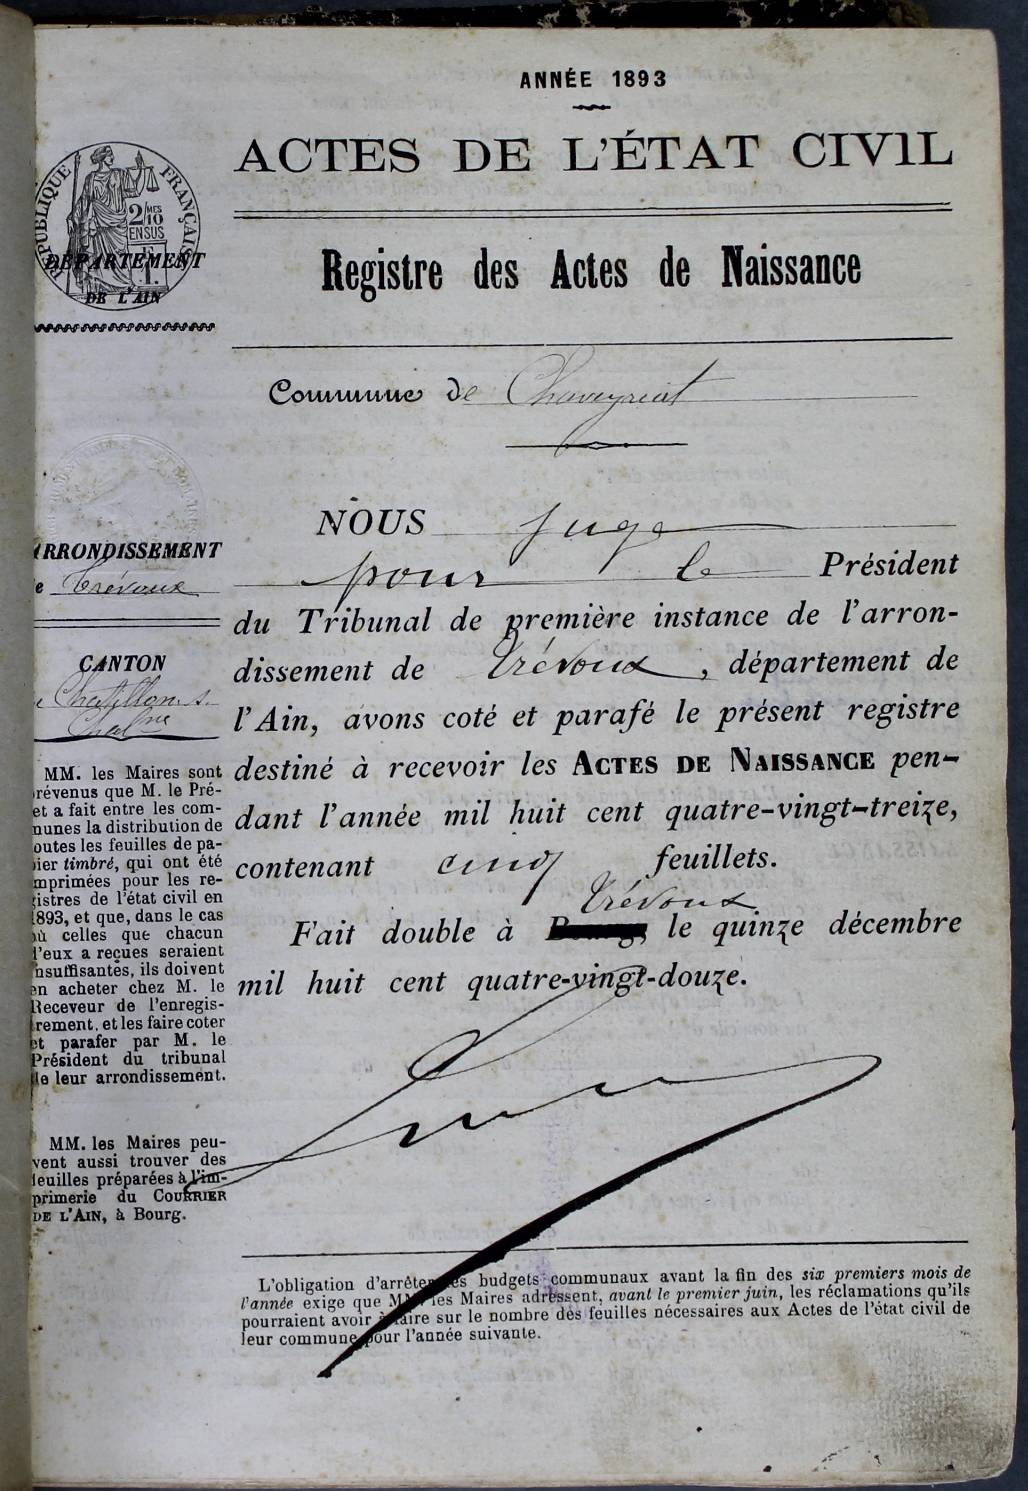 ANNÉE 1893
ACTES DE L'ÉTAT CIVIL
RÉPUBLIQUE FRANÇAISE
2/10 MES
EN SUS
DÉPARTEMENT
DE L'AIN
Registre des Actes de Naissance
Commune de Chaveyriat
ARRONDISSEMENT
e Trévoux
CANTON
e Chatillon s.
Chalne
MM. les Maires sont
révenus que M. le Pré-
et a fait entre les com-
munes la distribution de
outes les feuilles de pa-
ier timbré, qui ont été
mprimées pour les re-
gistres de l'état civil en
1893, et que, dans le cas
où celles que chacun
d'eux a reçues seraient
insuffisantes, ils doivent
en acheter chez M. le
Receveur de l'enregis-
trement, et les faire coter
et parafer par M. le
Président du tribunal
de leur arrondissement.
MM. les Maires peu-
vent aussi trouver des
feuilles préparées à l'im-
primerie du COURRIER
DE L'AIN, à Bourg.
NOUS Juge
pour le Président
du Tribunal de première instance de l'arron-
dissement de Trévoux, département de
l'Ain, avons coté et parafé le présent registre
destiné à recevoir les ACTES DE NAISSANCE pen-
dant l'année mil huit cent quatre-vingt-treize,
contenant cinq feuillets.
Trévoux
Fait double à Bourg, le quinze décembre
mil huit cent quatre-vingt-douze.
L'obligation d'arrêter les budgets communaux avant la fin des six premiers mois de
l'année exige que MM. les Maires adressent, avant le premier juin, les réclamations qu'ils
pourraient avoir à faire sur le nombre des feuilles nécessaires aux Actes de l'état civil de
leur commune pour l'année suivante.